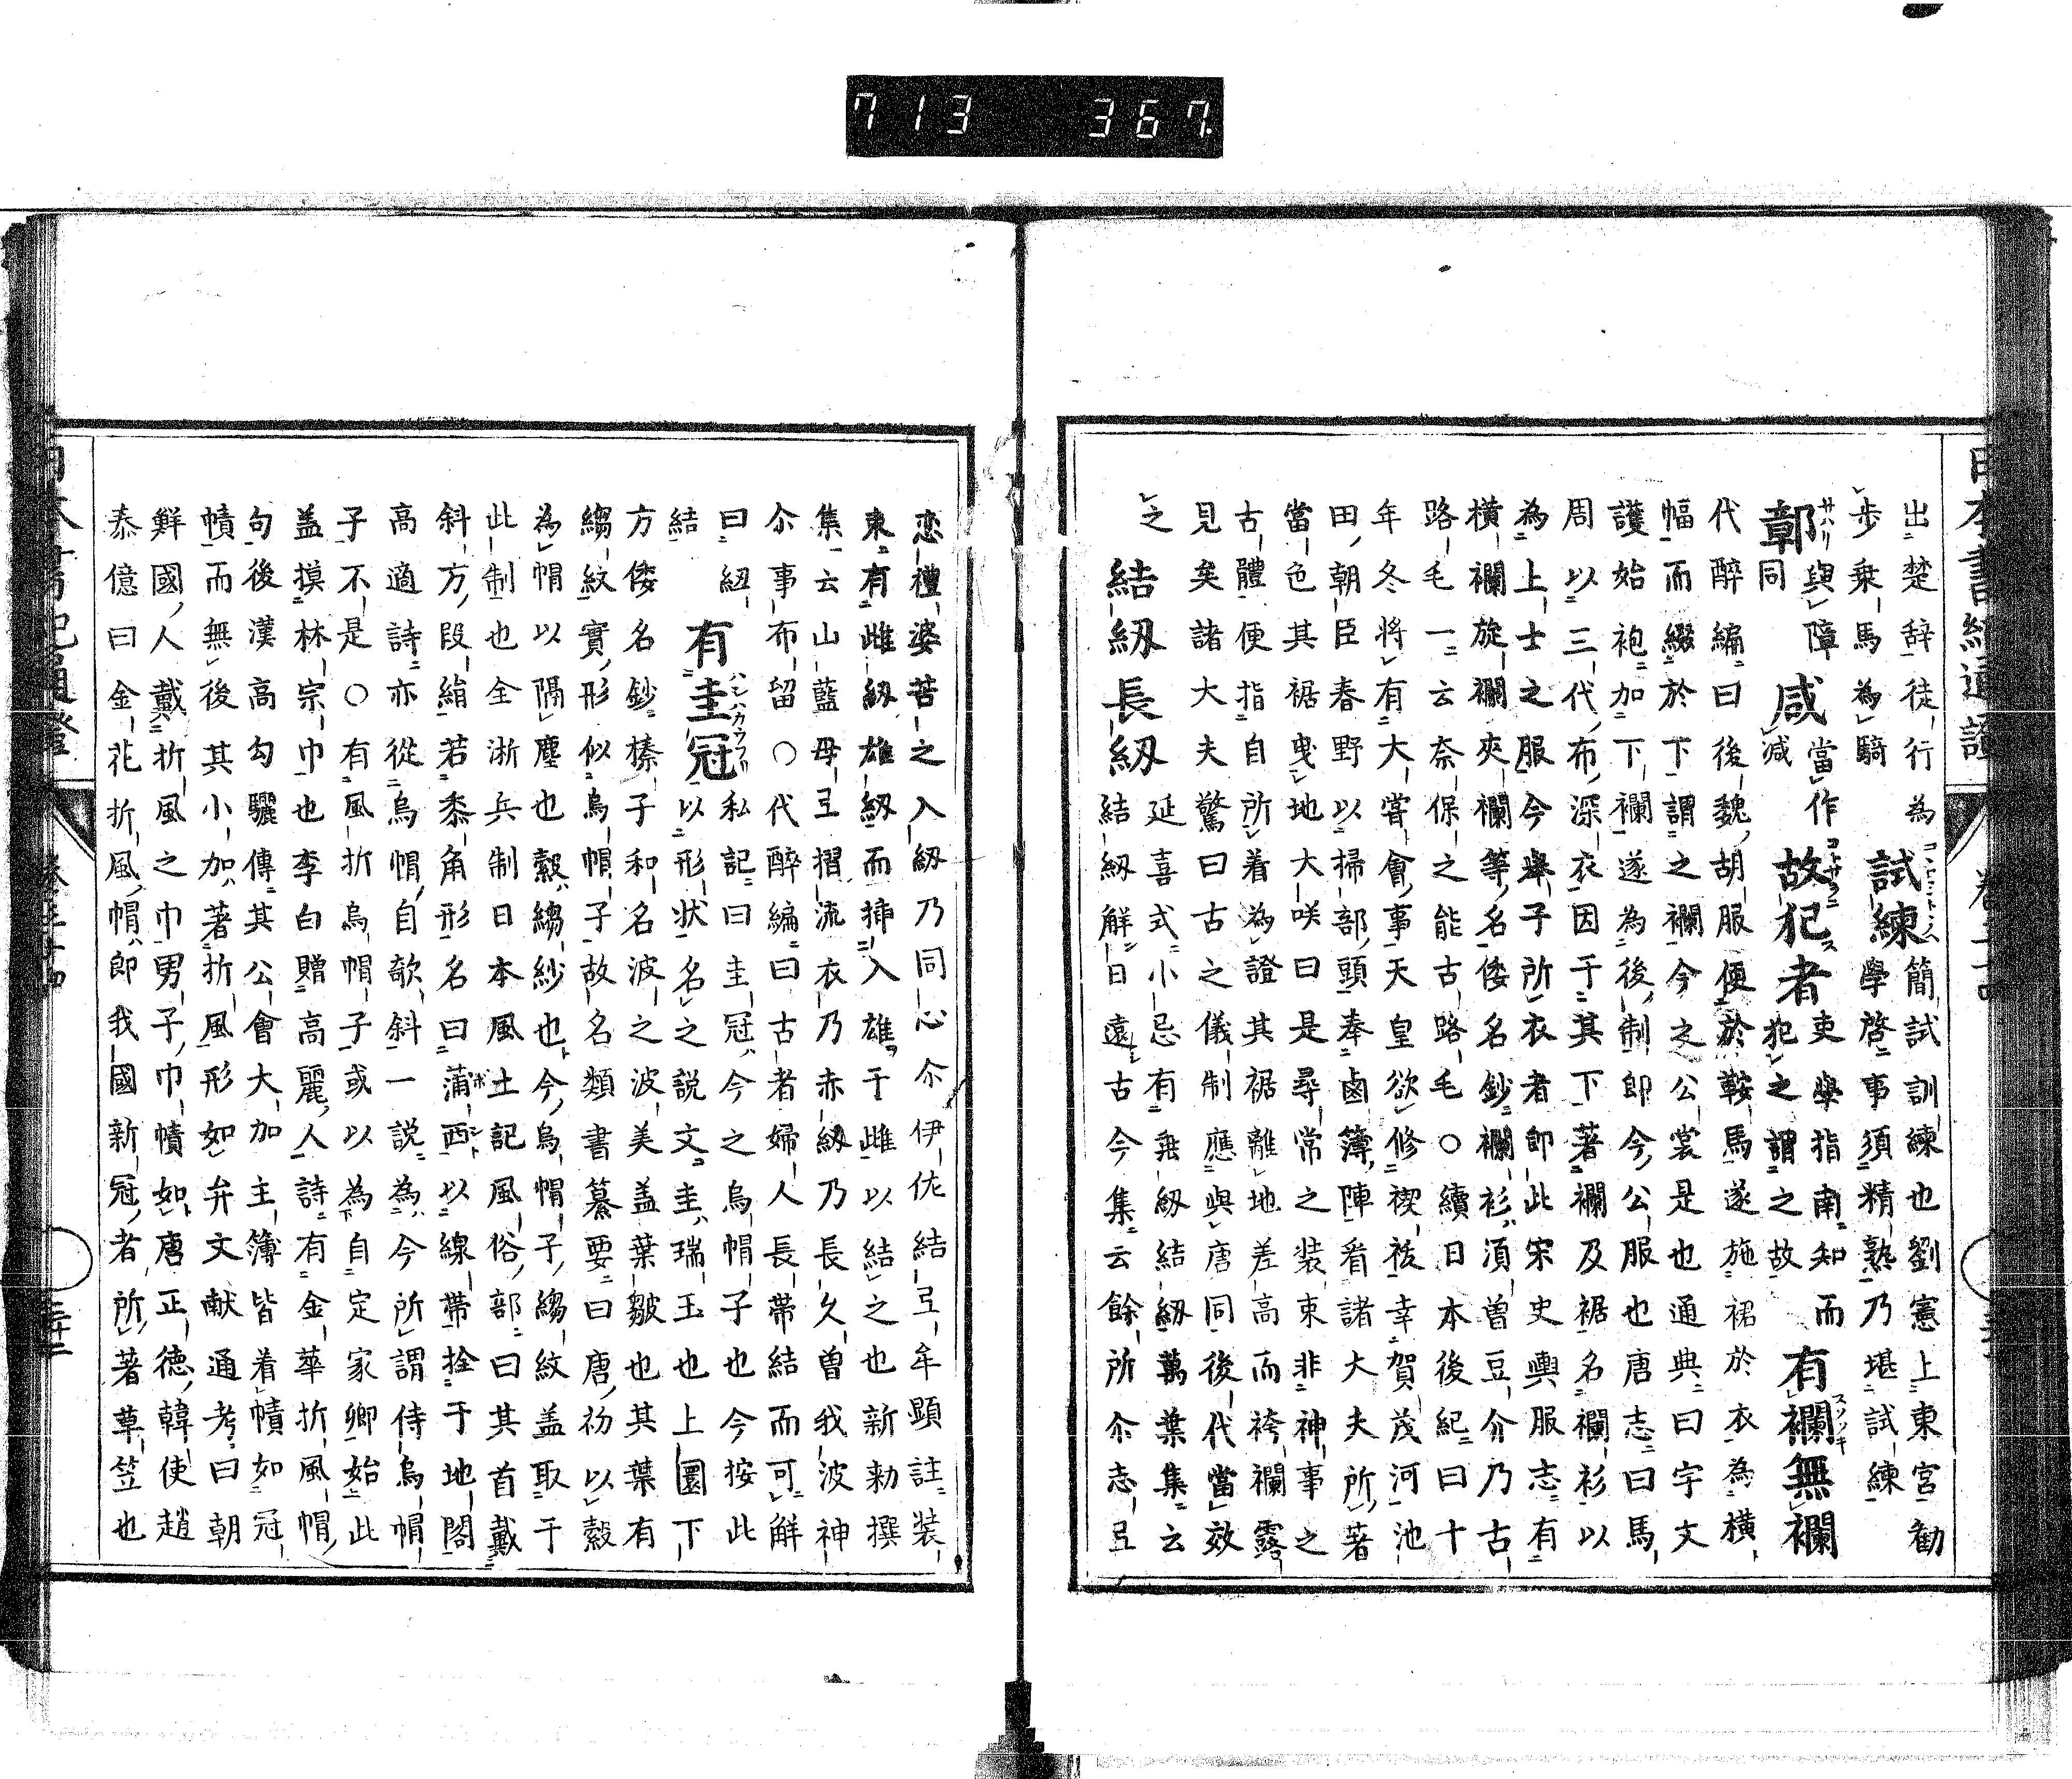 713 367.
出楚辞徒行為
試練
簡試訓練也劉憲上東宮勧
歩乗馬為騎
学啓事須精熟乃堪試練
鄣
サハリ
與障
同
咸
當作
減
故犯者
吏學指南知而
犯之謂之故
有襴無襴
スソツキ
代醉編曰後魏胡服便於鞍馬遂施裙於衣為横
幅而綴於下謂之襴今之公裳是也通典曰宇文
護始袍加下襴遂為後制即今公服也唐志曰馬
周以三代布深衣因于其下著襴及裾名襴衫以
為上士之服今舉子所衣者即此宋史輿服志有
横襴旋襴夾襴等名倭名鈔襴衫湏曽豆介乃古
路毛一云奈保之能古路毛○續日本後紀曰十
年冬将有大甞會事天皇欲修禊祓幸賀茂河池
田朝臣春野以掃部頭奉鹵簿陣看諸大夫所著
當色其裾曳地大咲曰是尋常之装束非神事之
古體便指自所着為證其裾離地差高而袴襴露
見矣諸大夫驚曰古之儀制應與唐同後代當效
之
結紉長紉
延喜式小忌有垂紉結紉萬葉集云
結紉解日遠古今集云餘所尓志弖
恋禮婆苦之入紉乃同心尓伊佐結弖牟顕註装
束有雌紉雄紉而挿入雄于雌以結之也新勅撰
集云山藍母弖摺流衣乃赤紉乃長久曽我波神
尓事布留○代醉編曰古者婦人長帯結而可解
曰紐
結
有圭冠
ハシハカウフリ
私記曰圭冠今之烏帽子也今按此
以形状名之説文圭瑞玉也上圜下
方倭名鈔榛子和名波之波美盖葉皺也其葉有
縐紋實形似烏帽子故名類書纂要曰唐初以縠
為帽以隔塵也縠縐紗也今烏帽子縐紋盖取于
此制也全浙兵制日本風土記風俗部曰其首戴
斜方段絹若黍角形名曰蒲西以線帯拴于地閣
高適詩亦從烏帽自欹斜一説為今所謂侍烏帽
子不是○有風折烏帽子或以為自定家卿始此
盖摸林宗巾也李白贈高麗人詩有金華折風帽
句後漢高句驪傳其公會大加主簿皆着幘如冠
幘而無後其小加著折風形如弁文献通考曰朝
鮮國人戴折風之巾男子巾幘如唐正徳韓使趙
泰億曰金花折風帽即我國新冠者所著草笠也